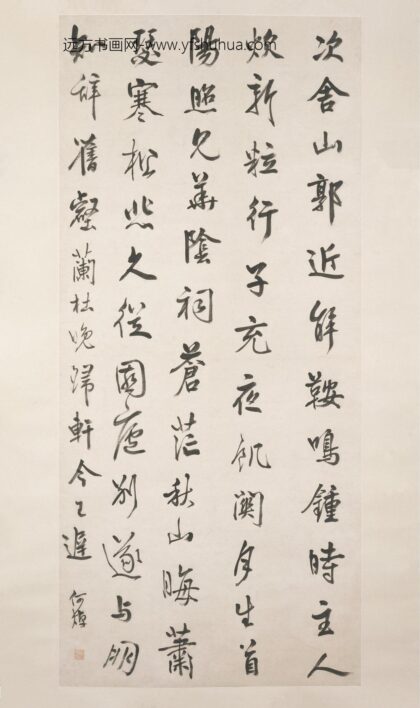 远方书画网-www.yfshuhua.com
次舍山郭近解鞍鳴鍾時主人
炊新粒行子充夜飢關月生首
陽照見華陰祠蒼茫秋山晦蕭
瑟寒松悲久從園廬別遂与朋
知辞舊壑蘭杜晚歸軒今已遲
何焯